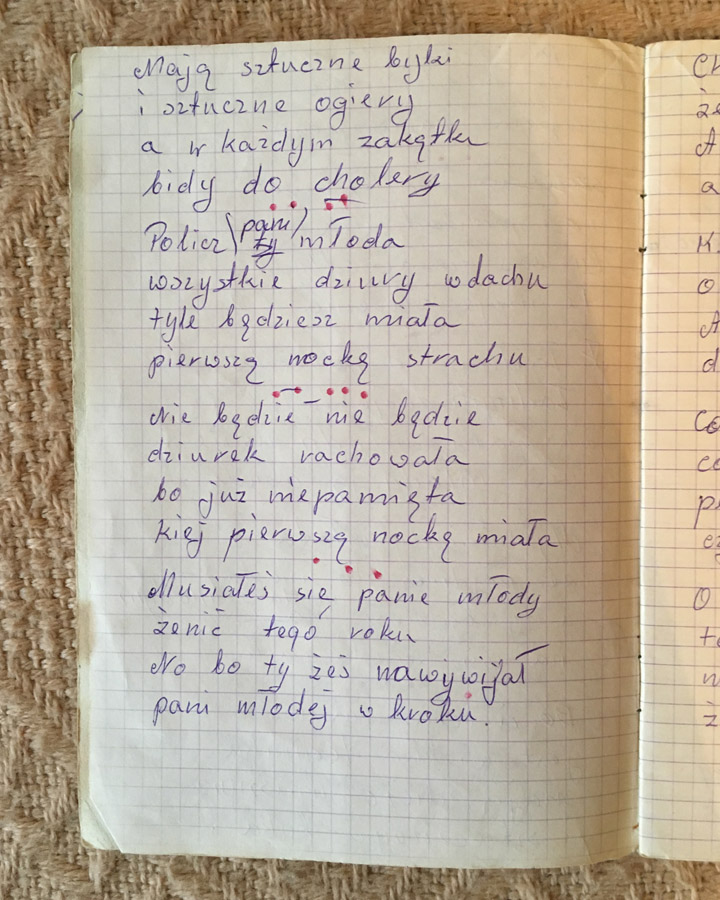 Mają sztuczne byki
i sztuczne ogiery
a w każdym zakątku
bidy do cholery
Policz (pani) ty młoda
wszystkie dziury w dachu
tyle będziesz miała
pierwszą nockę strachu
Nie będzie – nie będzie
dziurek rachowała
bo już niepamięta
kiej pierwszą nockę miała
Musiałeś się panie młody
żenić tego roku
No bo ty żeś nawywijał
pani młodej w kroku.